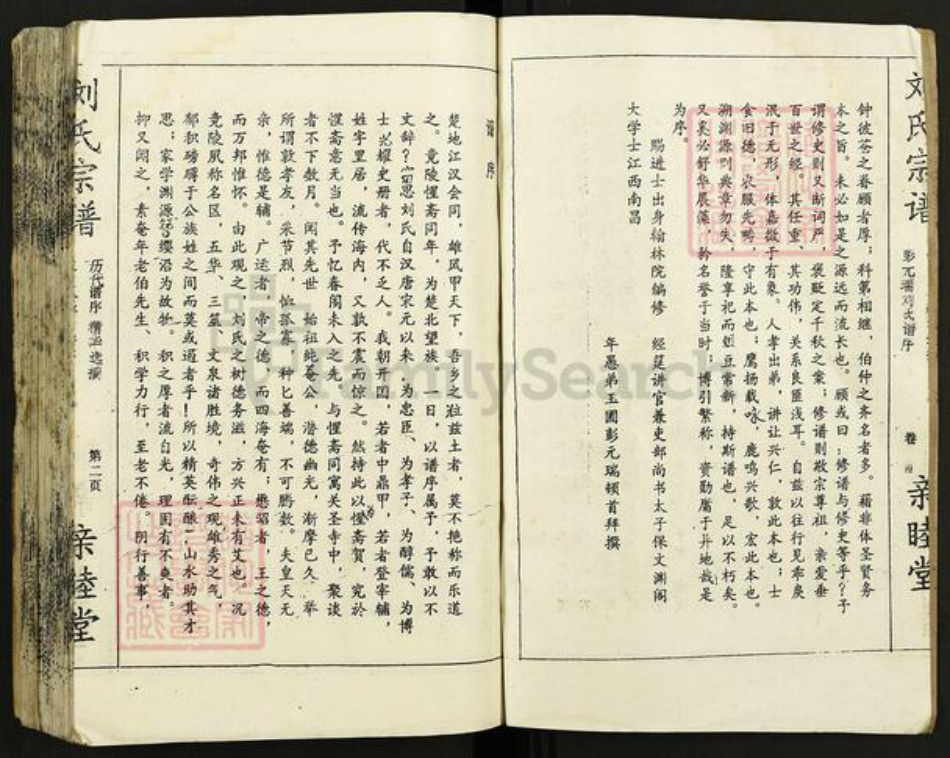 刘氏宗谱
彭元瑞刘氏谱序
卷
亲睦堂
钟彼苍之眷顾者厚；科第相继，伯仲之齐名者多。藉非体圣贤务
本之旨。未必如是之源远而流长也。顾或曰：修谱与修史等乎？予
谓修史则又断词严，褒贬定千秋之案；修谱则敬宗尊祖，亲爱垂
百世之经。其任重、其功伟，关系良匪浅耳。自兹以往行见乖戾
泯于无形，体嘉徵于有象。人孝出弟，讲让兴仁，敦此本也；士
食旧德，农服先畴，守此本也；鹰扬载咏，鹿鸣兴歌，宏此本也。
溯渊源则典章勿失，隆享祀而俎豆常新，持斯谱也，足以不朽矣。
又奚必舒华展藻，矜名誉于当时；博引繁称，资勋庸于异地哉是
为序。
赐进士出身翰林院编修 经筵讲官兼吏部尚书太子保文渊阁
大学士江西南昌
年愚弟玉圃彭元瑞顿首拜撰
谱序
楚地江汉会同，雄风甲天下，吾乡之泣兹土者，莫不艳称而乐道
之。竟陵惺斋同年，为楚北望族，一日，以谱序属予，予敢以不
文辞？窃思刘氏自汉唐宋元以来，为忠臣、为孝子、为醇儒、为博
士光耀史册者，代不乏人。我朝开国，若者中鼎甲，若者登宰辅，
姓字里居，流传海内，又孰不震而惊之。然持此以惺斋贺，究于
惺斋意无当也。予忆春闱未入之先。与惺斋同寓关圣寺中，聚谈
者不下数月。闻其先世 始祖纯菴公，潜德幽光，渐摩已久，举
所谓敦孝友，采节烈，恤孤寡，种匕善端，不可腾数。夫皇天无
亲，惟德是辅。广运者，帝之德，而四海奄有；懋昭者，王之德，
而万邦惟怀。由此观之，刘氏之树德务滋，方兴正未有艾也。况
竟陵夙称名区，五华、三筮、文泉诸胜境，奇伟之观雄秀之气，
郁积磅礴于公族姓之间而莫或遏者乎！所以精英酝酿，山水助其才
思；家学渊源，簪缨沿为故物。积之厚者流自光，理固有不爽者。
抑又闻之，素菴年老伯先生、积学力行，至老不倦。阴行善事，
刘氏宗谱
历代谱序 精选
第二页
亲睦堂
FamilySearch